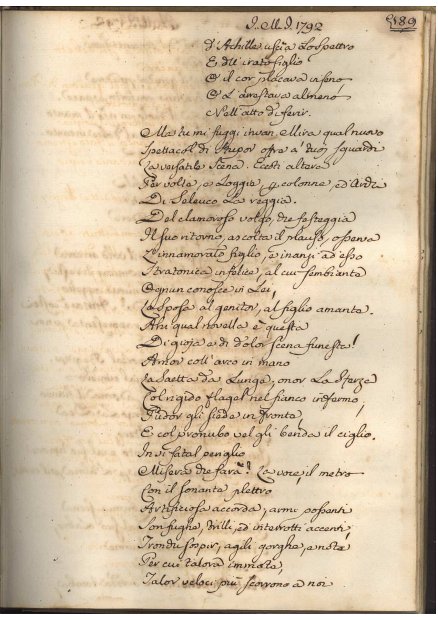 I. M. I. 1792
189
D'Achille uscìa Lo Spettro
E dell'irato figlio
O il cor placava in seno
O L'arrestava almeno
Nell'atto di ferir.
Ma tu mi fuggi invan. Mira qual nuovo
Spettacol di stupor offre a' tuoi sguardi
La versatile Scena. Eccoti altera
Per volte, e Loggie, e colonne, ed archi
Di Seleuco La reggia.
Del clamoroso volgo, che festeggia
Il suo ritorno, ascolta il plauso, osserva
L'innamorato figlio, e inanzi ad esso
Stratonica infelice, al cui sembiante
Ognun conosce in Lei,
La Sposa al genitor, al figlio amante.
Ahi qual novella è questa
Di gioja e di dolor scena funesta!
Amor coll'arco in mano
La Saetta da Lunge, onor La Sferza
Col rigido flagel nel fianco infermo,
Pudor gli siede in fronta,
E col pronubo vel gli benda il ciglio.
In sì fatal periglio
Misera che farà? La voce, il metro
Con il sonante plettro
Artificiosa accorda, armi possenti
Son fughe, trilli, ed interrotti accenti,
Tronchi sospir, agili gorghe, e note
Per cui talora immota,
Talor veloci più scorrono a noi